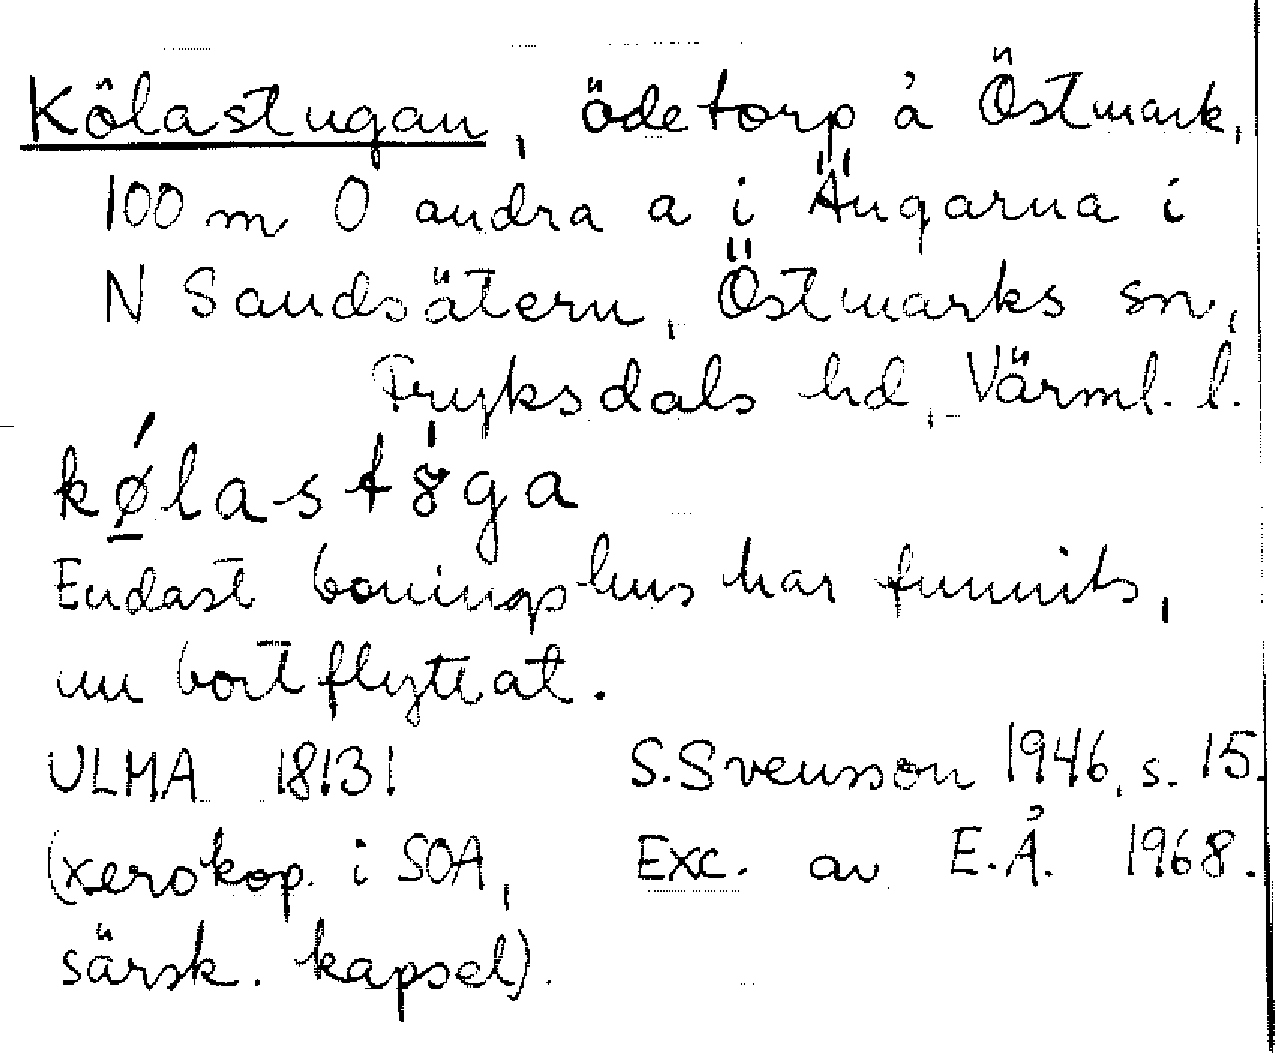 Kölastugan, ödetorp å Östmark,
100 m O andra a i Ängarna i
N Sandsätern, Östmarks sn,
Fryksdals hd, Värml. l.
kǿ̠lastɤ̀ga
Endast boningshus har funnits,
nu bortflyttat.
ULMA 18131 S. Svensson 1946, s. 15.
(xerokop. i SOA, Exc. av E.Å. 1968.
särsk. kapsel).